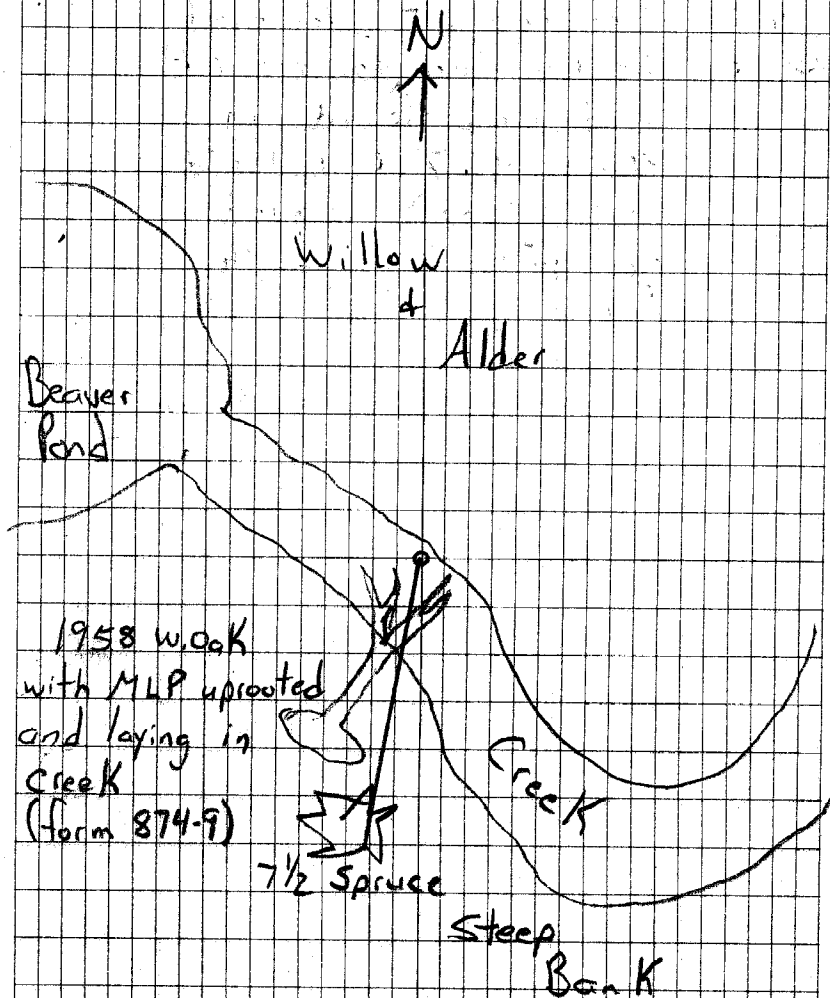 N
Willow
&
Alder
Beaver
Pond
1958 W.Oak
with MLP uprooted
and laying in
Creek
(form 874-9)
Creek
7 1/2 Spruce
Steep
Bank